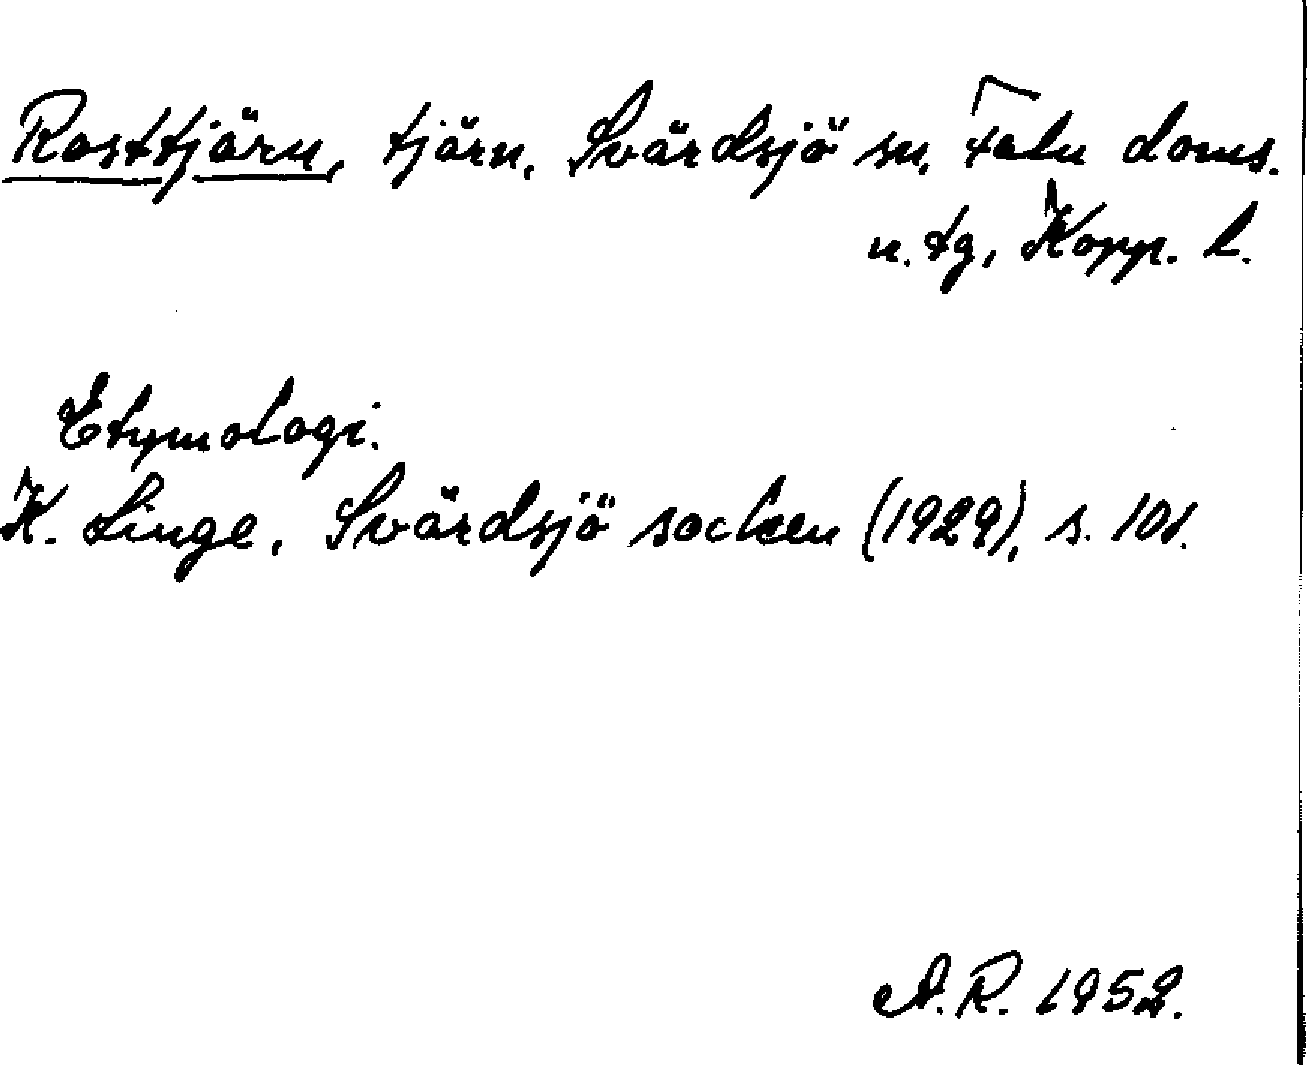 Rosttjärn, tjärn, Svärdsjö sn, Falu doms.
n. tg, Kopp. l.
Etymologi.
K. Linge, Svärdsjö socken (1929), s. 101.
A.R. 1952.